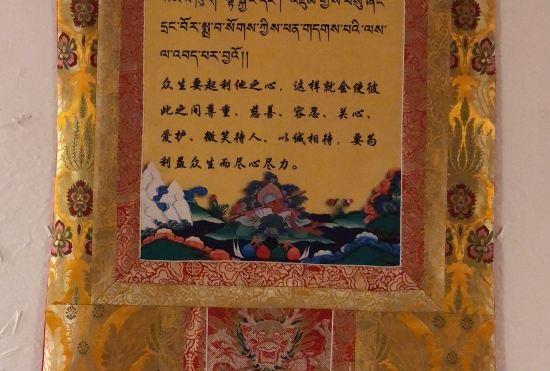 དྲང་བོར་སྨྲ་བ་སོགས་ཀྱིས་ཕན་གདགས་པའི་ལས་
ལ་འབད་པར་བྱའོ།།
众生要起利他之心，这样就会使彼
此之间尊重、慈善、容忍、关心、
爱护、微笑待人、以诚相待，要为
利益众生而尽心尽力。